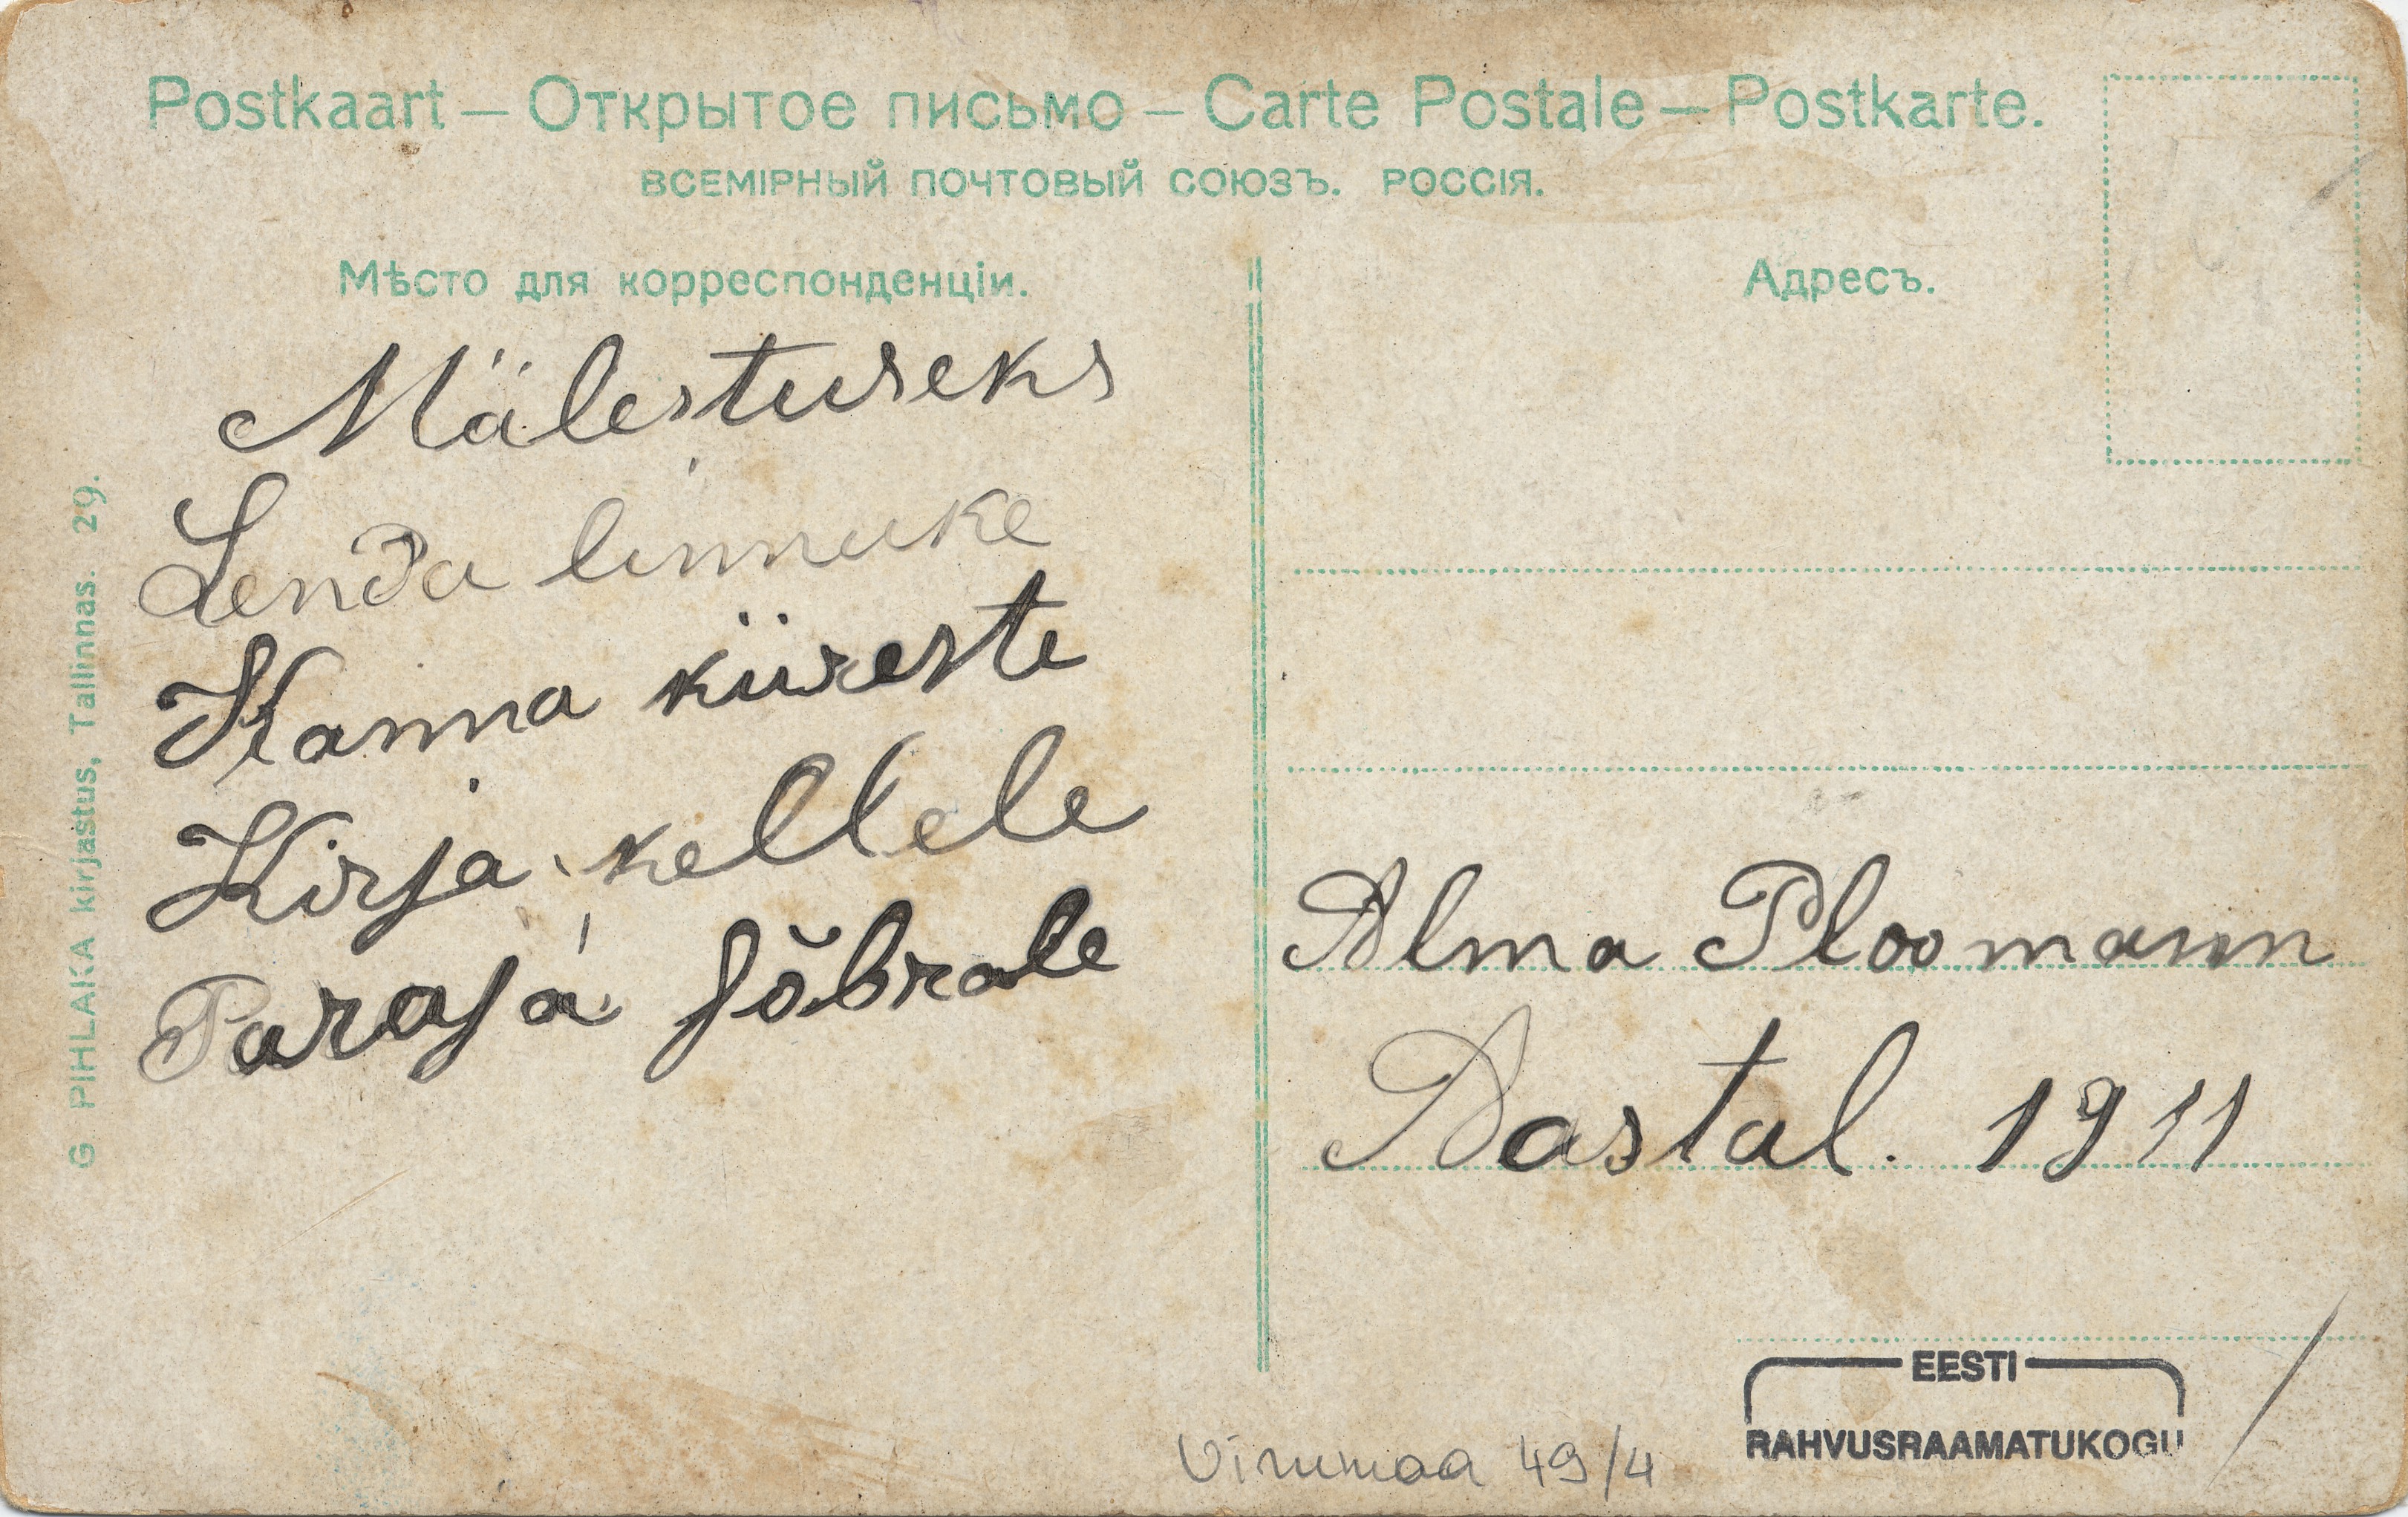 Postkaart — Открытое письмо — Carte Postale — Postkarte.
ВСЕМІРНЫЙ ПОЧТОВЫЙ СОЮЗЪ. РОССІЯ.
Мѣсто для корреспонденціи.
Mälestuseks
Lenda linnuke
Kanna küreste
Kirja kellele
Paraja sõbrale
G PIHLAKA kirjastus, Tallinnas. 29.
Адресъ.
Alma Ploomann
Aastal. 1911
EESTI
RAHVUSRAAMATUKOGU
Virumaa 49/4